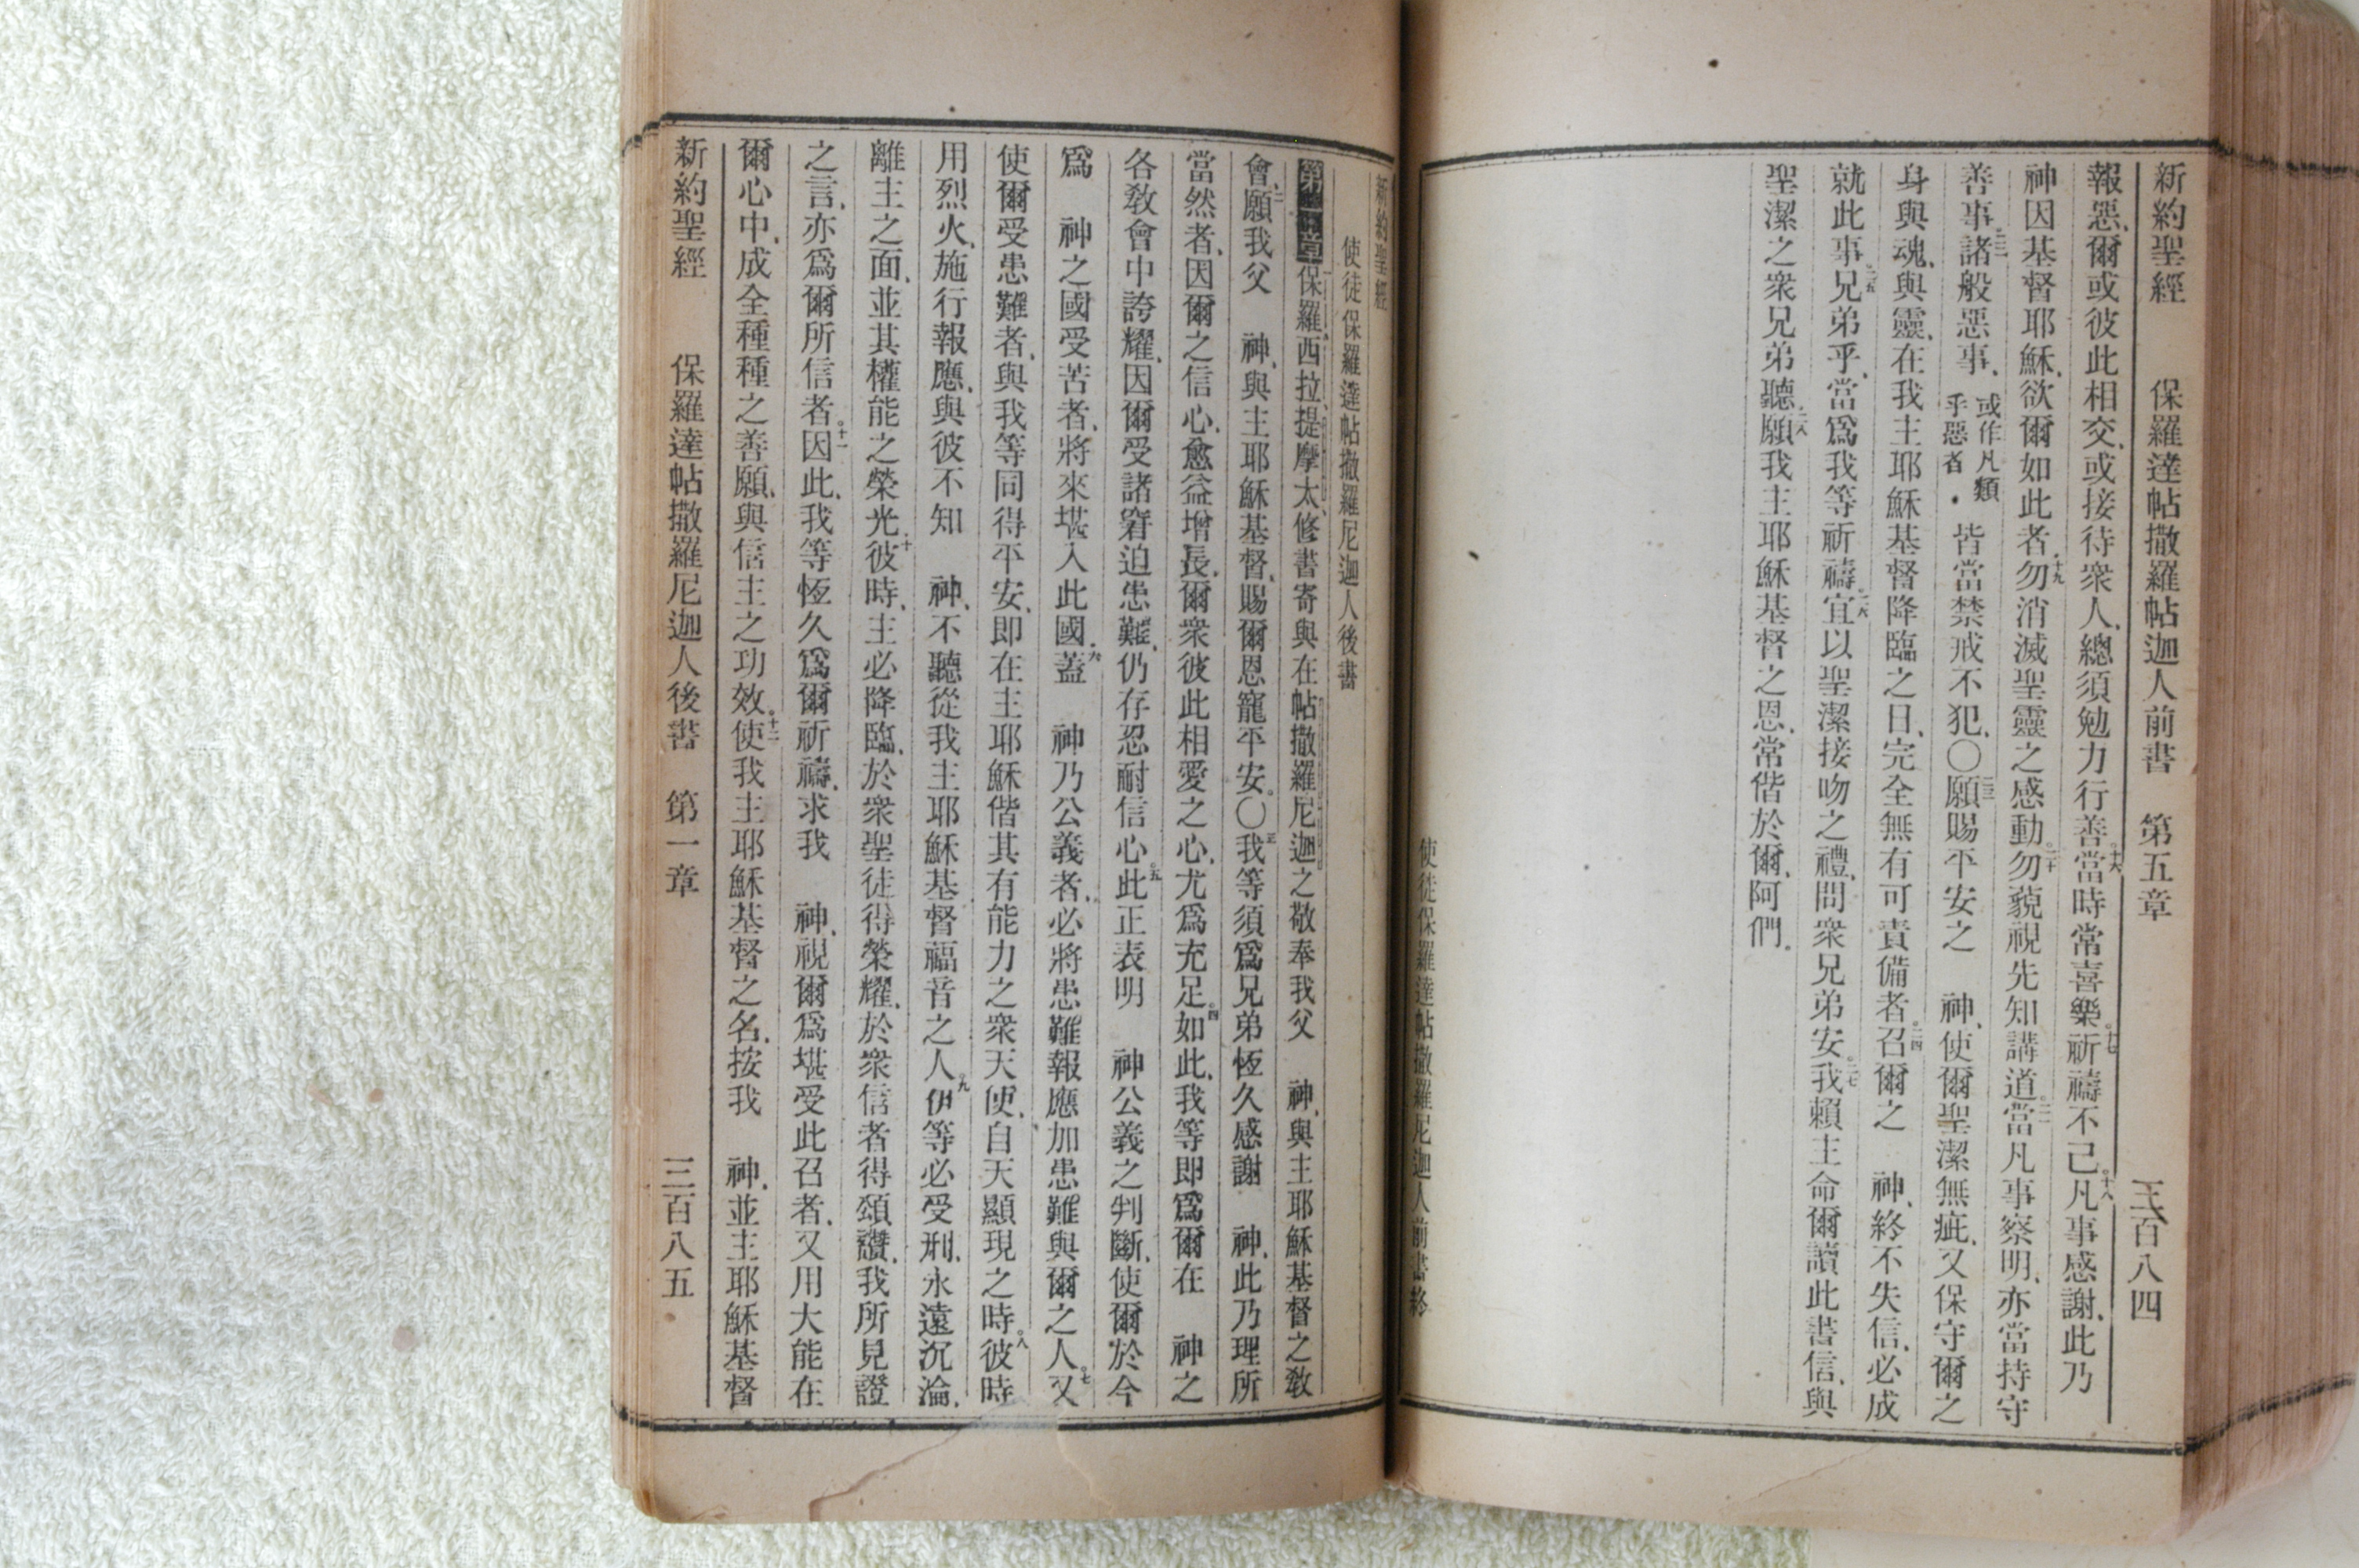 新約聖經 保羅達帖撒羅帖迦人前書 第五章 三百八四
報惡、爾或彼此相交、或接待衆人、總須勉力行善。十六當時常喜樂。十七祈禱不已。十八凡事感謝、此乃
神因基督耶穌、欲爾如此者。十九勿消滅聖靈之感動。二十勿藐視先知講道。二一當凡事察明、亦當持守
善事。二二諸般惡事、或作凡類乎惡者 皆當禁戒不犯、〇二三願賜平安之 神、使爾聖潔無疵、又保守爾之
身與魂、與靈、在我主耶穌基督降臨之日、完全無有可責備者。二四召爾之 神、終不失信、必成
就此事。二五兄弟乎、當爲我等祈禱。二六宜以聖潔接吻之禮、問衆兄弟安。二七我賴主命爾讀此書信、與
聖潔之衆兄弟聽。二八願我主耶穌基督之恩、常偕於爾、阿們。
使徒保羅達帖撒羅尼迦人前書終
新約聖經
使徒保羅達帖撒羅尼迦人後書
第一章 一保羅、西拉、提摩太、修書寄與在帖撒羅尼迦之敬奉我父 神、與主耶穌基督之敎
會。二願我父 神、與主耶穌基督、賜爾恩寵平安。〇三我等須爲兄弟恆久感謝 神、此乃理所
當然者、因爾之信心、愈益增長、爾衆彼此相愛之心、尤爲充足。四如此、我等即爲爾在 神之
各敎會中誇耀、因爾受諸窘迫患難、仍存忍耐信心。五此正表明 神公義之判斷、使爾於今
爲 神之國受苦者、將來堪入此國。六蓋 神乃公義者、必將患難報應加患難與爾之人。七又
使爾受患難者、與我等同得平安、即在主耶穌偕其有能力之衆天使、自天顯現之時。八彼時
用烈火、施行報應、與彼不知 神、不聽從我主耶穌基督福音之人。九伊等必受刑、永遠沉淪、
離主之面、並其權能之榮光。十彼時、主必降臨、於衆聖徒得榮耀、於衆信者得頌讚、我所見證
之言、亦爲爾所信者。十一因此、我等恆久爲爾祈禱、求我 神、視爾爲堪受此召者、又用大能在
爾心中、成全種種之善願、與信主之功效。十二使我主耶穌基督之名、按我 神、並主耶穌基督
新約聖經 保羅達帖撒羅尼迦人後書 第一章 三百八五